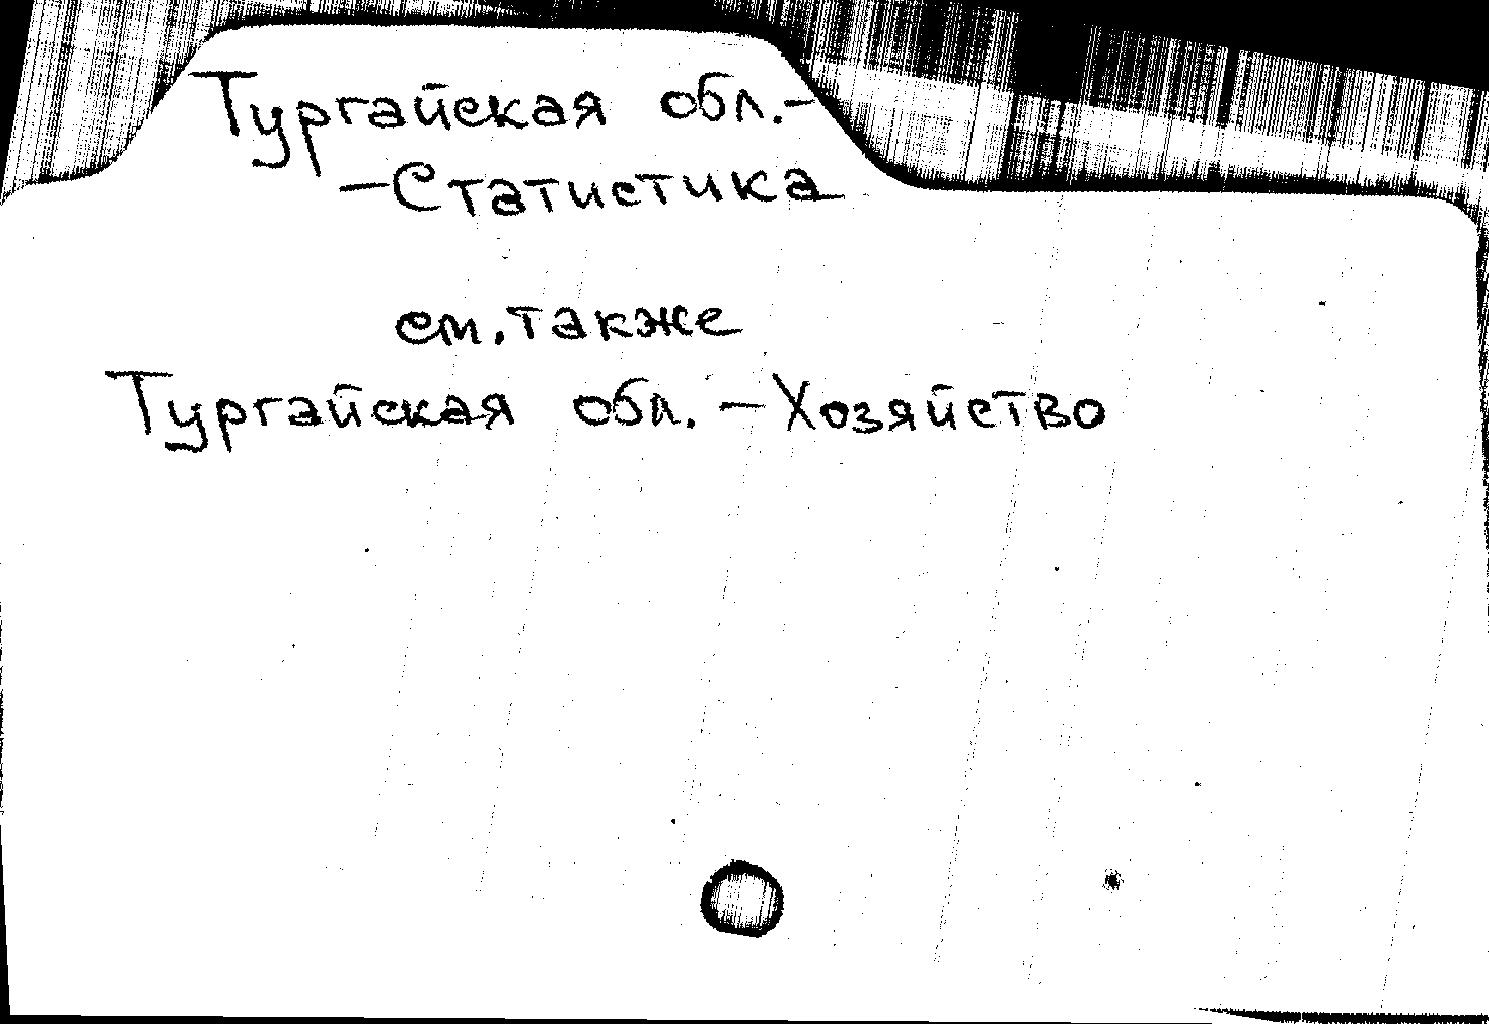 Тургайская обл.-
-Статистика
см. также
Тургайская обл. - Хозяйство